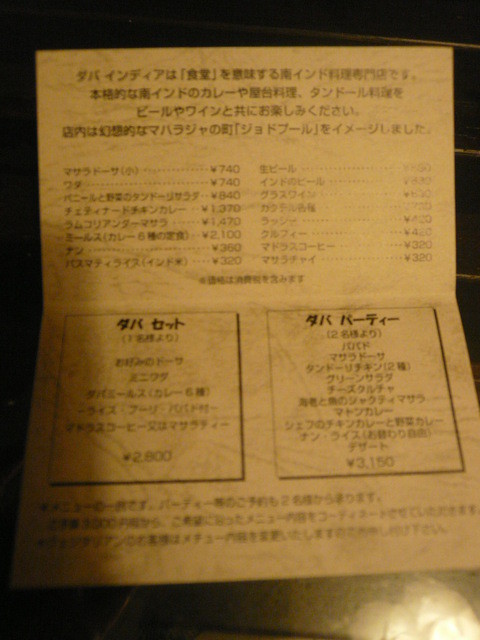 ダバ インディアは「食堂」を意味する南インド料理専門店です。
本格的な南インドのカレーや屋台料理、タンドール料理を
ビールやワインと共にお楽しみください。
店内は幻想的なマハラジャの町「ジョドプール」をイメージしました。
マサラドーサ(小) ¥740
ワダ ¥740
パニールと野菜のタンドーリサラダ ¥840
チェティナードチキンカレー ¥1,370
ラムコリアンダーマサラ ¥1,470
ミールス(カレー6種の定食) ¥2,100
ナン ¥360
バスマティライス(インド米) ¥320
生ビール
インドのビール
グラスワイン
カクテル各種
ラッシー ¥420
クルフィー ¥420
マドラスコーヒー ¥320
マサラチャイ ¥320
※価格は消費税を含みます
ダバ セット
(1名様より)
お好みのドーサ
ミニワダ
ダバミールス(カレー6種)
−ライス・プーリ・パパド付−
マドラスコーヒー又はマサラティー
¥2,800
ダバ パーティー
(2名様より)
パパド
マサラドーサ
タンドーリチキン(2種)
グリーンサラダ
チーズクルチャ
海老と魚のジャクティマサラ
マトンカレー
シェフのチキンカレーと野菜カレー
ナン・ライス(お替わり自由)
デザート
¥3,150
※メニューの一例です。パーティー等のご予約も2名様から承ります。
ご予算3,000円位から、ご希望におったメニュー内容をコーディネートさせていただきます
※ベジタリアンのお客様はメニュー内容を変更いたしますのでお申し付け下さい。